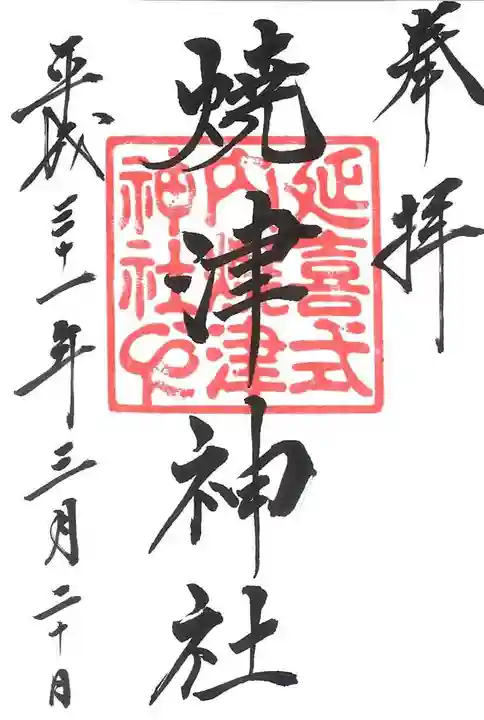 奉拝
焼津神社
延喜式
内焼津
神社印
平成三十一年三月二十日